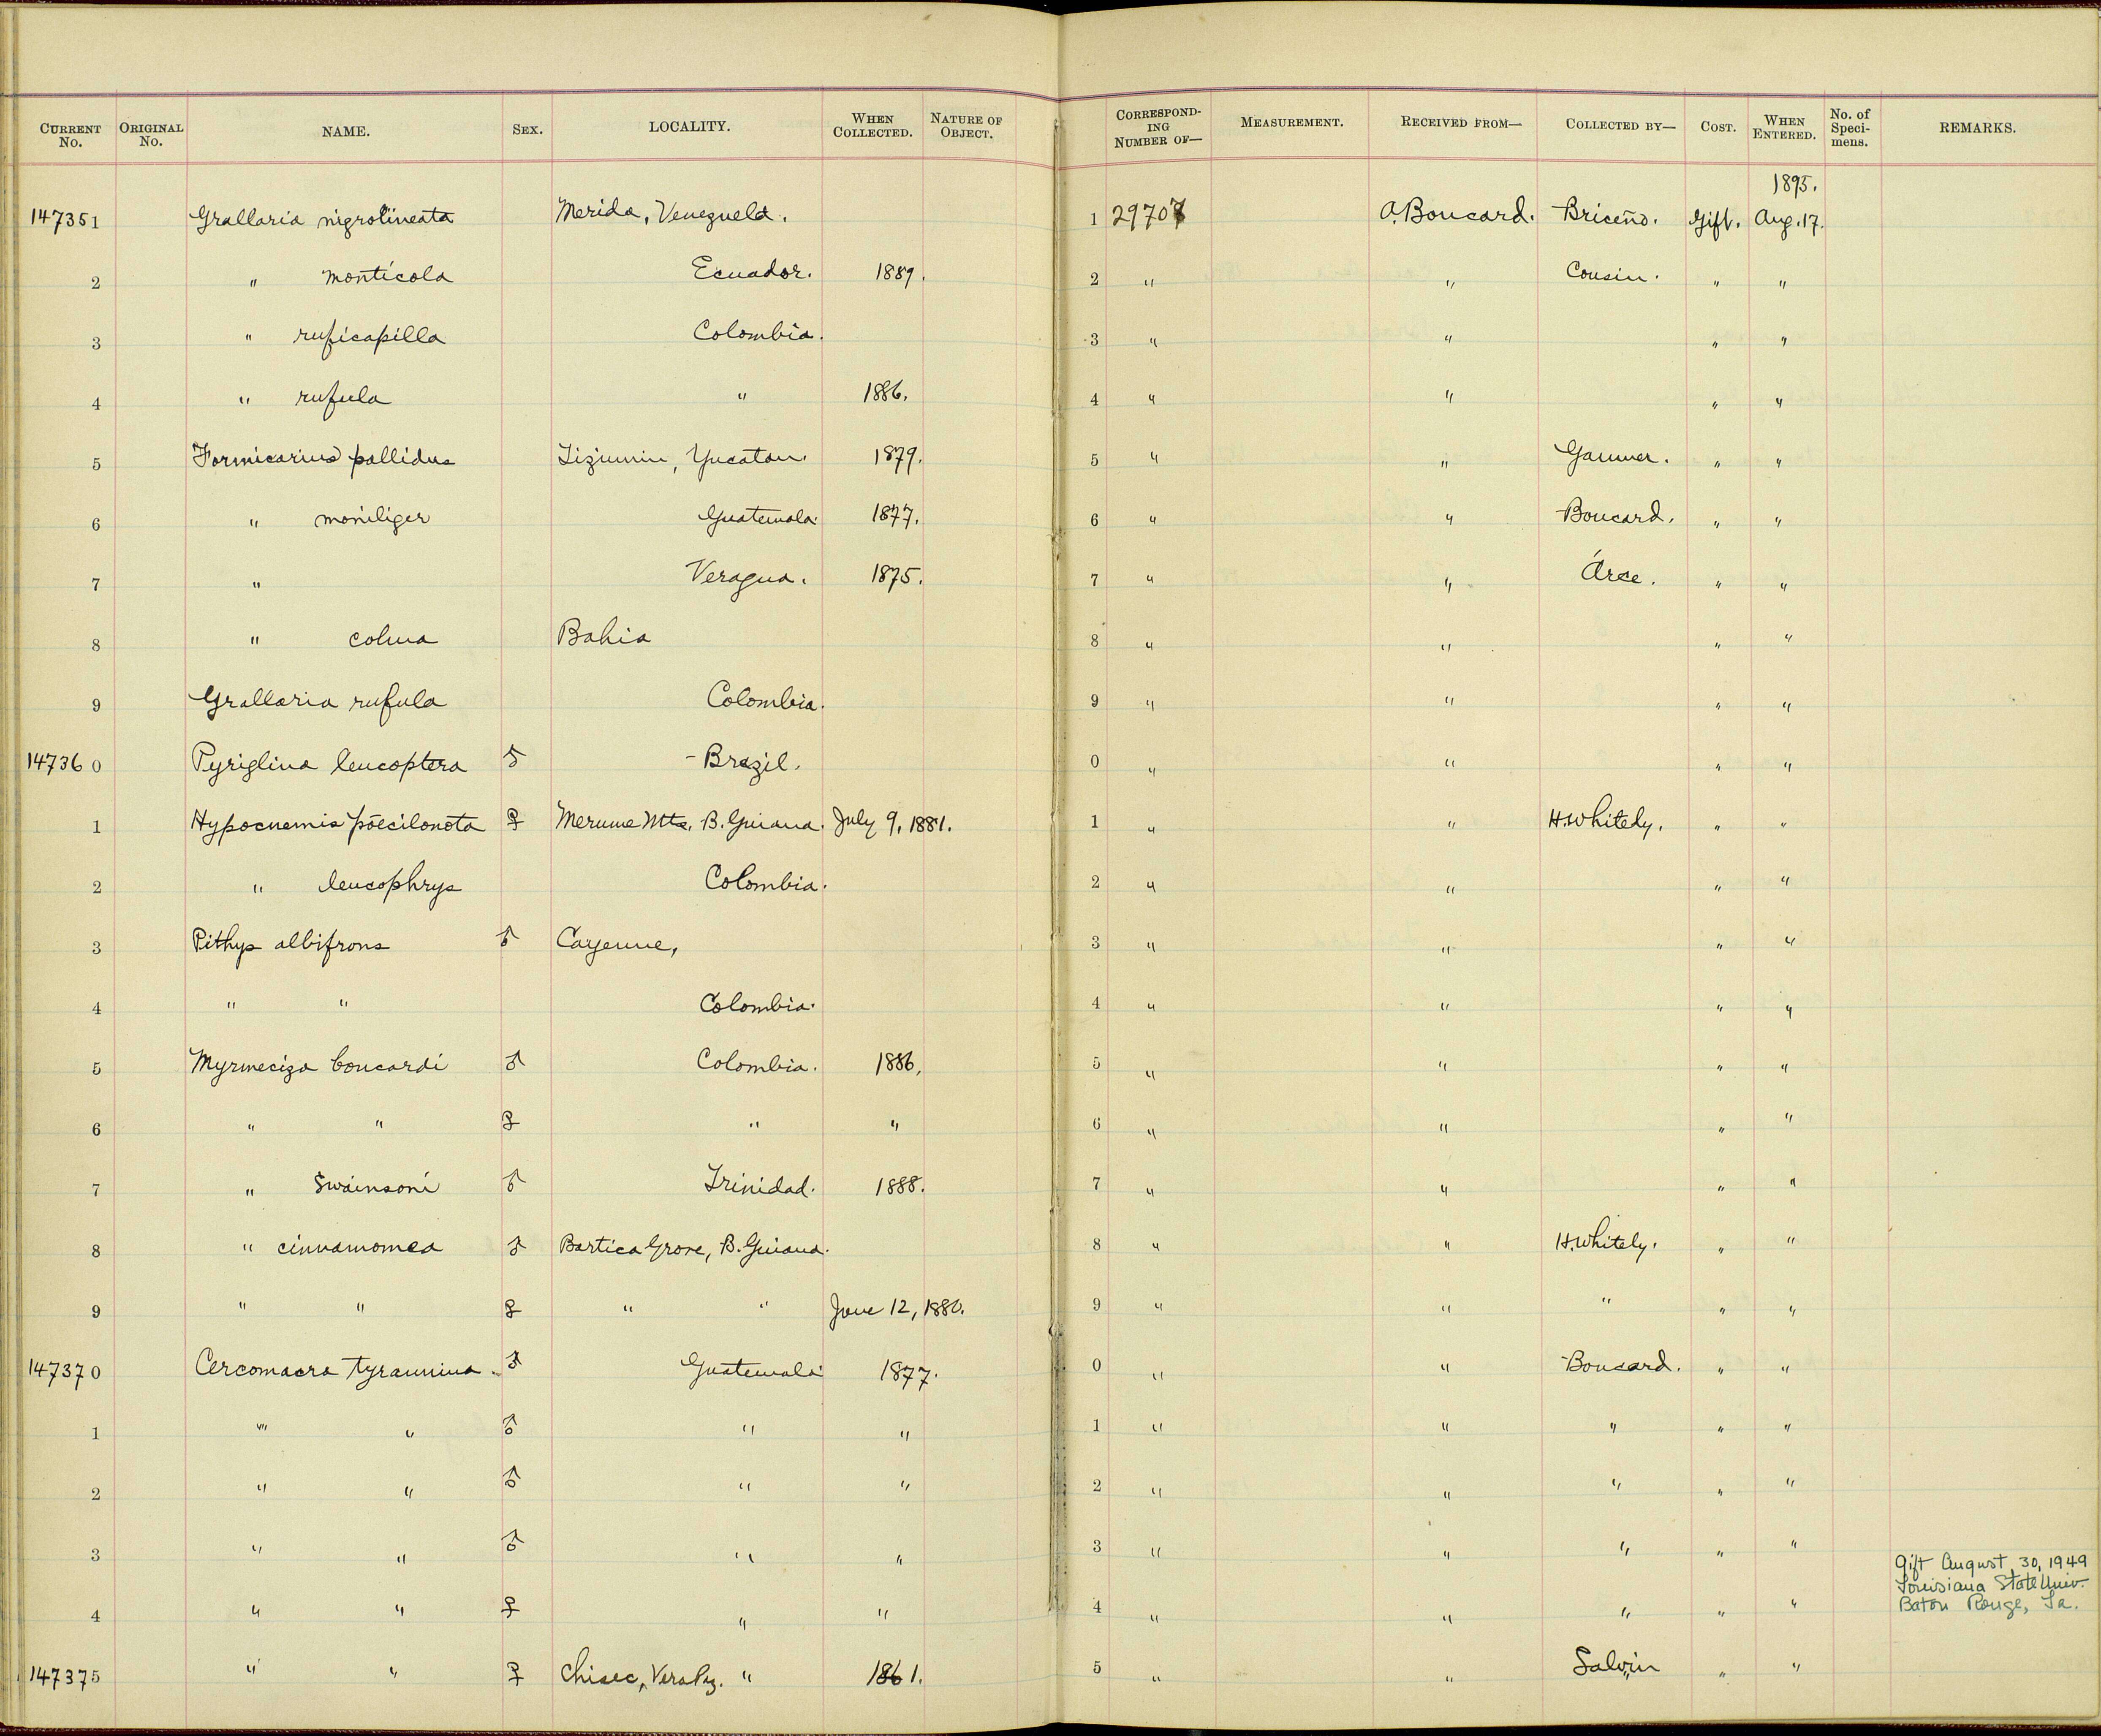 CURRENT No. ORIGINAL No. NAME. SEX. LOCALITY. WHEN COLLECTED. NATURE OF OBJECT. CORRESPONDING NUMBER OF— MEASUREMENT. RECEIVED FROM— COLLECTED BY— COST. WHEN ENTERED. No. of Specimens. REMARKS.
1895.
147351 Grallaria nigrolineata Merida, Venezuela. 1 29707 A. Boucard. Briceño. Gift. Aug. 17.
2 " monticola Ecuador. 1889. 2 " " Cousin. " "
3 " ruficapilla Colombia. 3 " " " "
4 " rufula " 1886. 4 " " " "
5 Formicarius pallidus Tizimin, Yucatan. 1879. 5 " " Gaumer. " "
6 " moniliger Guatemala. 1877. 6 " " Boucard. " "
7 " Veragua. 1875. 7 " " Arce. " "
8 " colma Bahia 8 " " " "
9 Grallaria rufula Colombia. 9 " " " "
147360 Pyriglina leucoptera ♂ Brazil. 0 " " " "
1 Hypocnemis poecilonota ♀ Merume Mts. B. Guiana. July 9, 1881. 1 " " H. Whitely. " "
2 " leucophrys Colombia. 2 " " " "
3 Pithys albifrons ♂ Cayenne, 3 " " " "
4 " " Colombia. 4 " " " "
5 Myrmeciza boucardi ♂ Colombia. 1886. 5 " " " "
6 " " ♀ " " 6 " " " "
7 " Swainsoni ♂ Trinidad. 1888. 7 " " " "
8 " cinnamomea ♂ Bartica Grove, B. Guiana. 8 " " H. Whitely. " "
9 " " ♀ " " June 12, 1880. 9 " " " " "
147370 Cercomacra tyrannina. ♂ Guatemala 1877. 0 " " Boucard. " "
1 " " ♂ " " 1 " " " " "
2 " " ♂ " " 2 " " " " "
3 " " ♂ " " 3 " " " " "
Gift August 30, 1949
Louisiana State Univ.
Baton Rouge, La.
4 " " ♀ " " 4 " " " " "
147375 " " ♀ Chisec, Vera Paz. " 1861. 5 " " Salvin " "